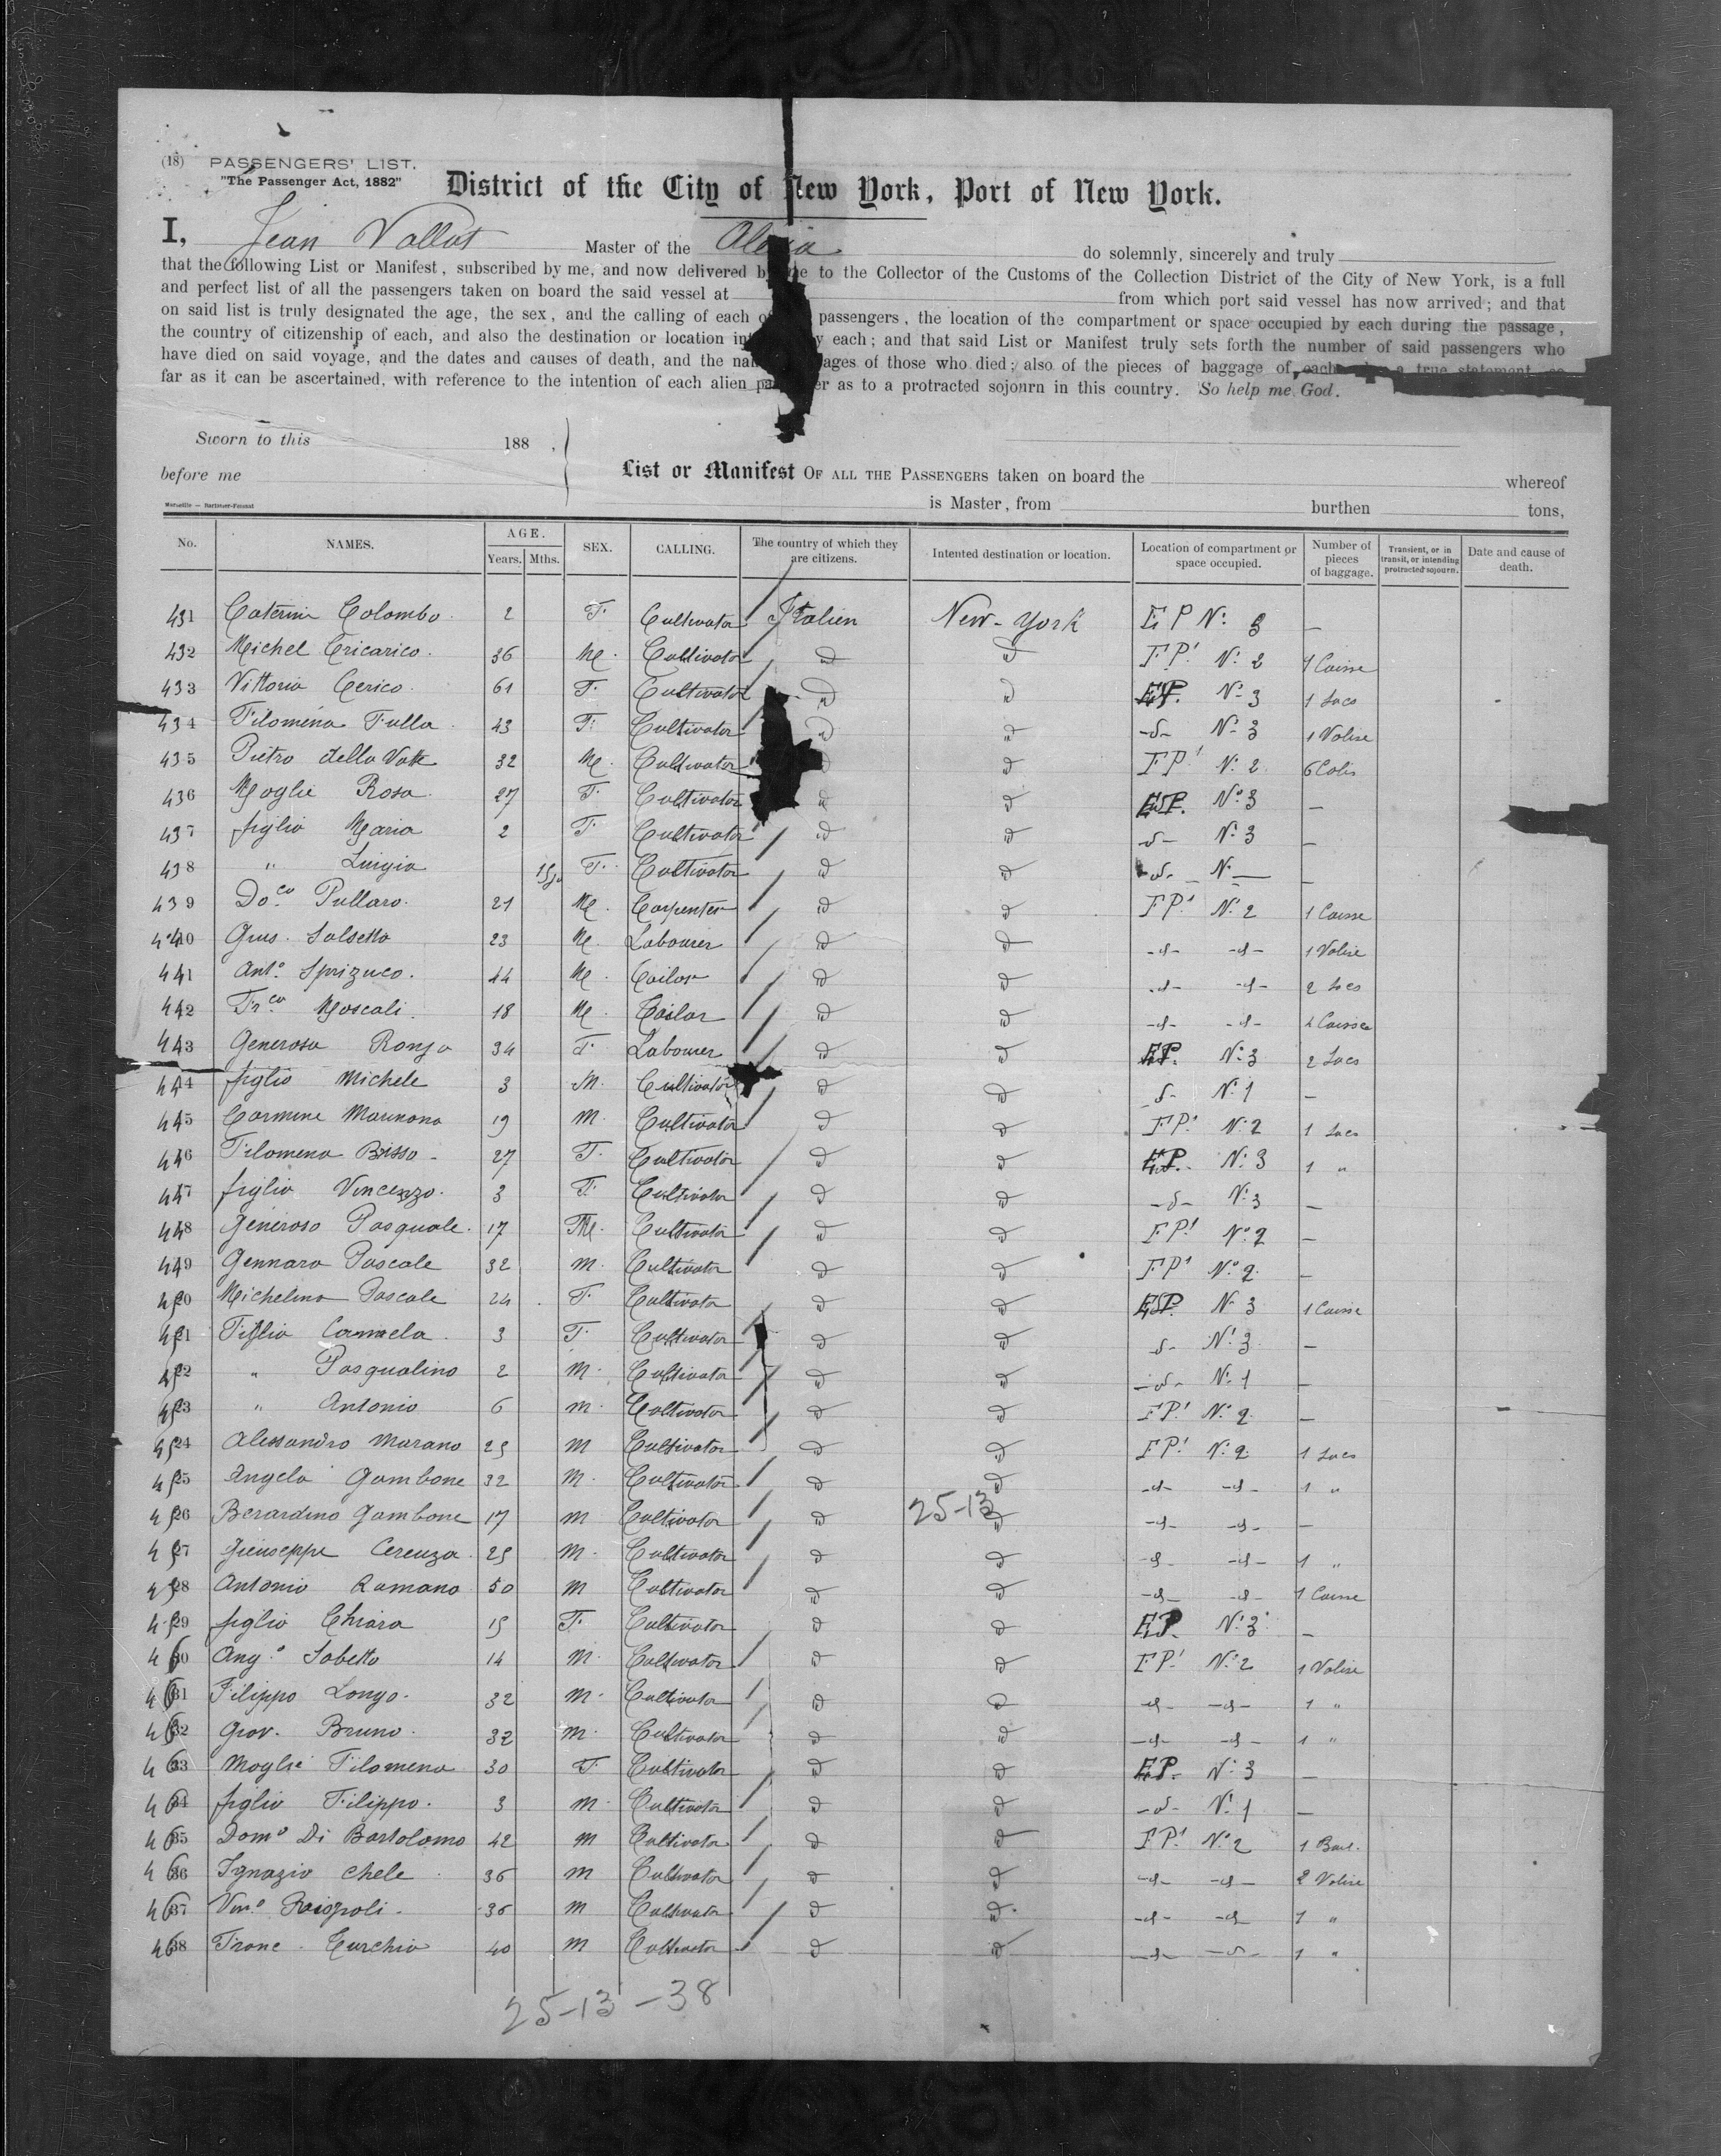 (18) PASSENGERS' LIST.
"The Passenger Act, 1882"
District of the City of New York, Port of New York.
I, Jean Vallat Master of the Alesia do solemnly, sincerely and truly
that the following List or Manifest, subscribed by me, and now delivered by me to the Collector of the Customs of the Collection District of the City of New York, is a full
and perfect list of all the passengers taken on board the said vessel at from which port said vessel has now arrived; and that
on said list is truly designated the age, the sex, and the calling of each of passengers, the location of the compartment or space occupied by each during the passage,
the country of citizenship of each, and also the destination or location in y each; and that said List or Manifest truly sets forth the number of said passengers who
have died on said voyage, and the dates and causes of death, and the nam ages of those who died; also of the pieces of baggage of each a true statement, so
far as it can be ascertained, with reference to the intention of each alien pa er as to a protracted sojourn in this country. So help me God.
Sworn to this 188 ,
before me
List or Manifest OF ALL THE PASSENGERS taken on board the whereof
is Master, from burthen tons,
No. NAMES. AGE. Years. Mths. SEX. CALLING. The country of which they are citizens. Intented destination or location. Location of compartment or space occupied. Number of pieces of baggage. Transient, or in transit, or intending protracted sojourn. Date and cause of death.
431 Caterina Colombo. 2 F. Cultivator Italien New-York E P N° 3 —
432 Michel Cricarico. 36 M. Cultivator d d F P! N° 2 1 Caisse
433 Vittoria Cerico. 61 F. Cultivator d d E P. N° 3 1 Sacs
434 Filomena Fulla 43 F. Cultivator d d -d- N° 3 1 Valise
435 Pietro della Vatte 32 M. Cultivator d d F P! N° 2 6 Colis
436 Moglie Rosa 27 F. Cultivator d d E P. N° 3 —
437 figlio Maria 2 F. Cultivator d d -d- N° 3 —
438 " Luigia F. Cultivator d d -d- N° — —
439 Do.co Pullaro. 21 M. Carpenter d d F P! N° 2 1 Caisse
440 Gius. Salsetta 23 M. Labourer d d -d- -d- 1 Valise
441 Ant.o Sprizuco. 44 M. Tailor d d -d- -d- 2 Sacs
442 Fr.co Moscali. 18 M. Tailor d d -d- -d- 2 Caisses
443 Generosa Ronza 34 F. Labourer d d E P. N° 3 2 Sacs
444 figlio Michele 3 M. Cultivator d d -d- N° 1 —
445 Carmine Marinona 19 M. Cultivator d d F P! N° 2 1 Sacs
446 Filomena Bisso 27 F. Cultivator d d E P. N° 3 1 "
447 figlio Vincenzo. 3 F. Cultivator d d -d- N° 3 —
448 Generoso Pasquale. 17 M. Cultivator d d F P! N° 2 —
449 Gennaro Pascale 32 M. Cultivator d d F P! N° 2 —
450 Michelina Pascale 24 F. Cultivator d d E P. N° 3 1 Caisse
451 Figlio Carmela 3 F. Cultivator d d -d- N° 3 —
452 " Pasqualino 2 M. Cultivator d d -d- N° 1 —
453 " Antonio 6 M. Cultivator d d F P! N° 2 —
454 Alessandro Murano 25 M Cultivator d d F P! N° 2 1 Sacs
455 Angelo Gambone 32 M. Cultivator d d -d- -d- 1 "
456 Berardino Gambone 17 M Cultivator d 25-13 d -d- -d- —
457 Gieuseppe Cerenza 25 M. Cultivator d d -d- -d- 1 "
458 Antonio Romano 50 M Cultivator d d -d- -d- 1 Caisse
459 figlio Chiara 15 F. Cultivator d d E P. N° 3 —
460 Ang.o Sabetto 14 M. Cultivator d d F P! N° 2 1 Valise
461 Filippo Longo. 32 M. Cultivator d d -d- -d- 1 "
462 Giov. Bruno. 32 M. Cultivator d d -d- -d- 1 "
463 Moglie Filomena 30 F. Cultivator d d E P. N° 3 —
464 figlio Filippo. 3 M. Cultivator d d -d- N° 1 —
465 Dom.o Di Bartolomo 42 M Cultivator d d F P! N° 2 1 Baul.
466 Ignazio Chele 36 M Cultivator d d -d- -d- 2 Valise
467 Vin.o Raispoli. 36 M Cultivator d d -d- -d- 1 "
468 Franc. Curchio 40 M Cultivator d d -d- -d- 1 "
25-13-38